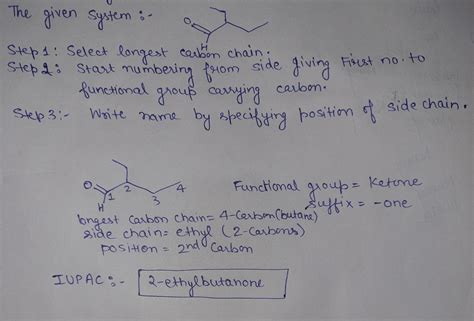 The given system :-
O
H
Step 1: Select longest carbon chain.
Step 2: Start numbering from side giving First no. to
functional group carrying carbon.
Step 3:- Write name by specifying position of side chain.
O 1 2 3 4
H
Functional group = Ketone
suffix = -one
longest carbon chain = 4-Carbon (butane)
side chain = ethyl (2-Carbons)
position = 2nd Carbon
IUPAC :- 2-ethylbutanone